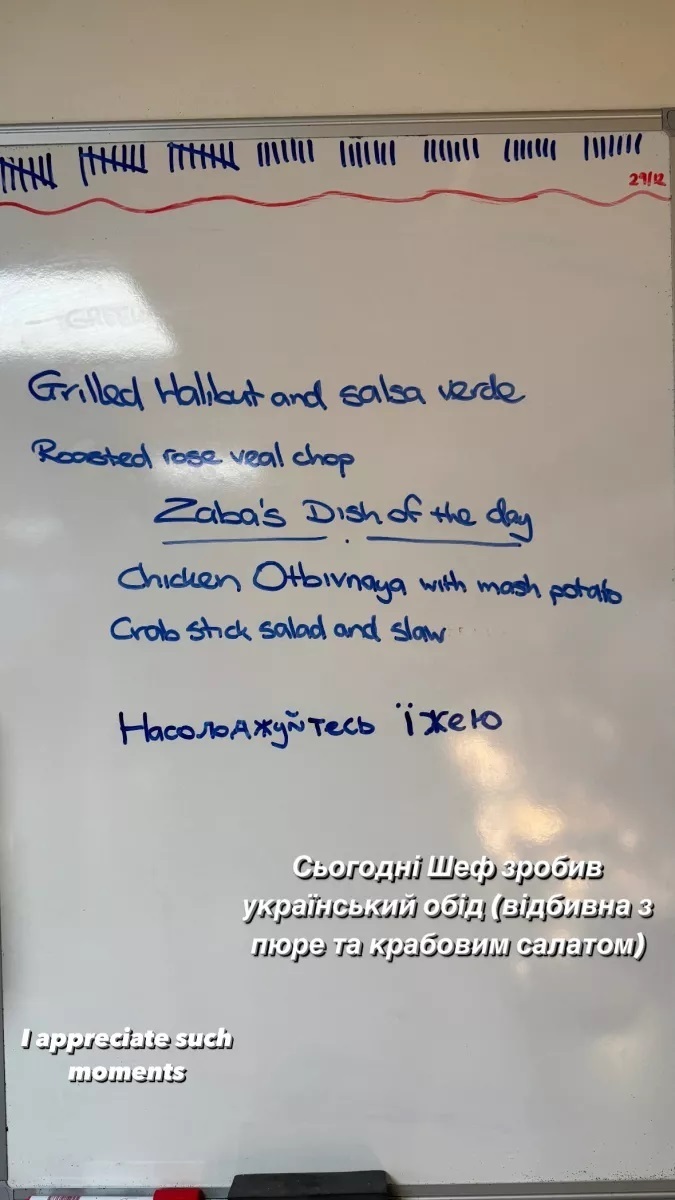 29/12
Grilled Halibut and salsa verde
Roasted rose veal chop
Zaba's Dish of the day
Chicken Otbivnaya with mash potato
Crab stick salad and slaw
Насолоджуйтесь їжею
Сьогодні Шеф зробив
український обід (відбивна з
пюре та крабовим салатом)
I appreciate such
moments